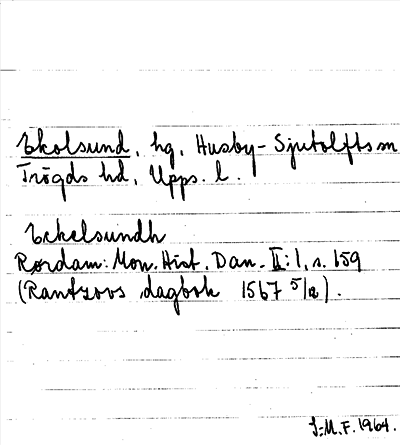 Ekolsund, hg, Husby-Sjutolfts sn
Trögds hd, Upps. l.
Eckelsundh
Rørdam: Mon. Hist. Dan. II:1, s. 159
(Rantzovs dagbok 1567 5/12).
J.M.F. 1964.